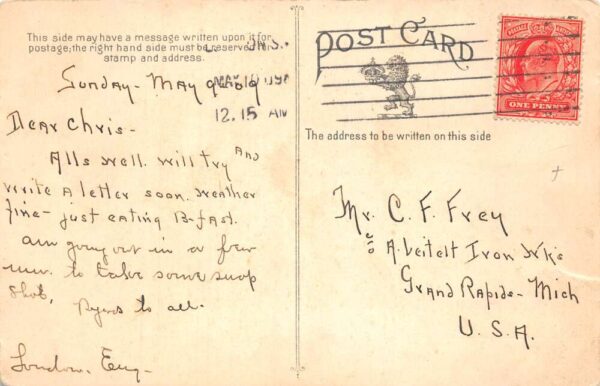 This side may have a message written upon it for
postage; the right hand side must be reserved for
stamp and address.
12.15 AM
Sunday - May
Dear Chris -
Alls well. Will try and
write a letter soon. Weather
fine - just eating B-fast.
am going out in a few
min. to take some snap
shots,
to all.
London. Eng -
POST CARD
ONE PENNY
The address to be written on this side
Mr. C. F. Frey
c/o A. Leitelt Iron Wks
Grand Rapids - Mich
U. S. A.